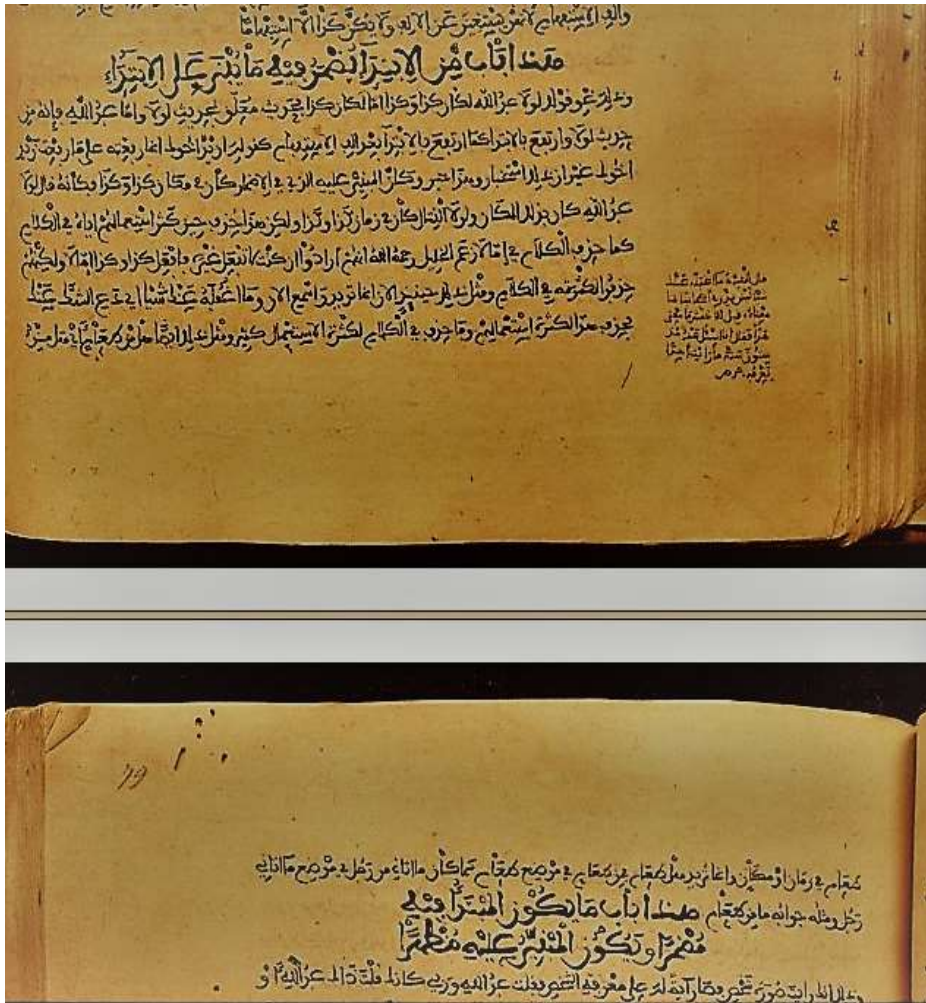 هذا باب من الابتدآ يضمر فيه ما يبنى على الابتداء
وذلك نحو قولك لولا عبد الله لكان كذا وكذا اما لكان كذا فحديث معلق بحديث لولا واما عبد الله فانه من
حديث لولا وارتفع بالابتدا كما ارتفع بالابتدآ بعد الف الاستفهام كقولك ازيد اخوك انما رفعته على ما رفعت زيد
اخوك غير ان ذلك استخبار وهذا خبر وكان المبني عليه الذي في الاضمار كان في مكان كذا وكذا فكانه قال لولا
عبد الله كان بذلك المكان ولولا القتال كان في زمان كذا وكذا ولكن هذا حذف حين كثر استعمالهم اياه في الكلام
كما حذف الكلام في اما لا زعم الخليل رحمة الله انهم ارادوا ان كنت لا تفعل غيره فافعل كذا وكذا اما لا ولكنهم
حذفوا لكثرته في الكلام ومثل ذلك حينئذ الان انما تريد واسمع الان وما اغفله عنك شيئا اي دع الشك عنك
فحذف هذا لكثرة استعمالهم وما حذف في الكلام لكثرة الاستعمال كثير ومثل ذلك ايضا هل من طعام اي هل من
طعام في زمان او مكان وانما تريد هل طعام فمن طعام في موضع طعام كما كان ما اتاني من رجل في موضع ما اتاني
رجل ومثله جوابه ما من طعام هذا باب ما يكون المبتدأ فيه
مضمرا ويكون المبني عليه مظهرا
صورة شخص فصار آية لك على معرفة الشخص فقلت عبد الله وربي كانك قلت ذاك عبد الله او